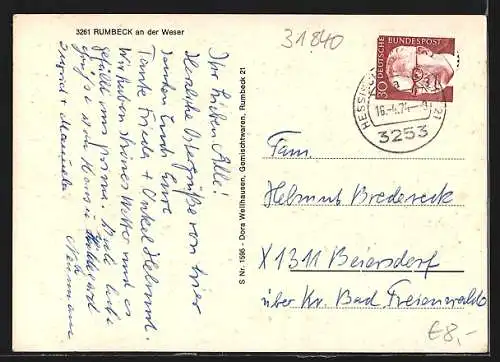 3261 RUMBECK an der Weser
31840
30 DEUTSCHE BUNDESPOST
HESSISCH
21
16.-4.74
3253
Ihr Lieben Alle!
Herzliche Ostergrüße von hier
senden Euch Eure
Tante Frieda + Onkel Helmut.
Wir haben schönes Wetter und es
gefällt uns prima. Viele liebe
Grüße von Hans u. Hildegard
Ingrid + Manuela
Neumann
S Nr. 1595 - Dora Wellhausen, Gemischtwaren, Rumbeck 21
Fam.
Helmut Bredereck
X 1311 Beiersdorf
über Kr. Bad Freienwalde
€8,-